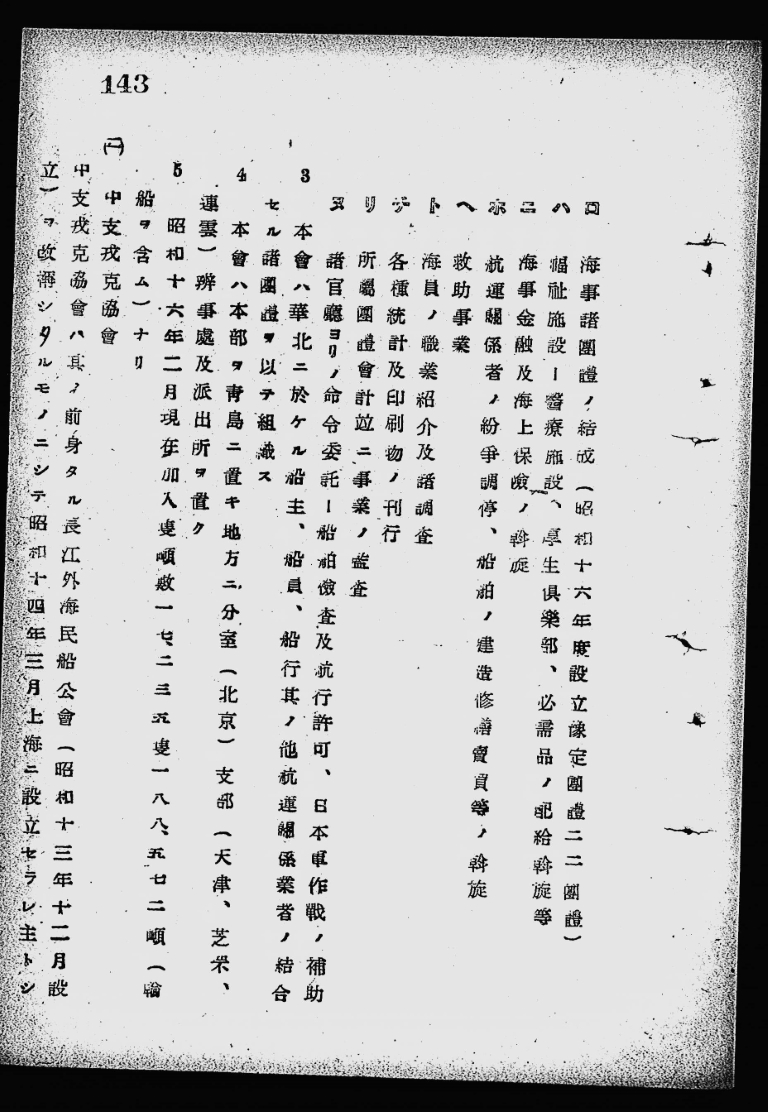 143
ロ 海事諸團體ノ結成（昭和十六年度設立豫定團體二二團體）
ハ 福祉施設ー醫療施設、厚生俱樂部、必需品ノ配給斡旋等
ニ 海事金融及海上保險ノ斡旋
ホ 航運關係者ノ紛爭調停、船舶ノ建造修繕賣買等ノ斡旋
ヘ 救助事業
ト 海員ノ職業紹介及諸調査
チ 各種統計及印刷物ノ刊行
リ 所屬團體會計竝ニ事業ノ監査
ヌ 諸官廳ヨリノ命令委託ー船舶檢査及航行許可、日本軍作戰ノ補助
3 本會ハ華北ニ於ケル船主、船員、船行其ノ他航運關係業者ノ結合
セル諸團體ヲ以テ組織ス
4 本會ハ本部ヲ靑島ニ置キ地方ニ分室（北京）支部（天津、芝罘、
連雲）辨事處及派出所ヲ置ク
5 昭和十六年二月現在加入隻噸數一七、二三五隻一八八、五七二噸（輪
船ヲ含ム）ナリ
(二) 中支戎克協會
中支戎克協會ハ其ノ前身タル長江外海民船公會（昭和十三年十二月設
立）ヲ改稱シタルモノニシテ昭和十四年三月上海ニ設立セラレ主トシ